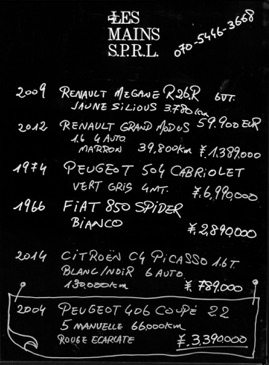 LES
MAINS
S.P.R.L.
070-5446-3668
2009 RENAULT MEGANE R26.R 6VT.
JAUNE SILIOUS 3780km
59.900 EUR
2012 RENAULT GRAND MODUS
1.6 4 AUTO
MARRON 39,800km ¥.1.389.000
1974 PEUGEOT 504 CABRIOLET
VERT GRIS 4MT. ¥.6,990,000
1966 FiAT 850 SPiDER
BiANCO ¥2,890,000
2014 CiTROËN C4 PiCASSO 1.6T.
BLANC/NOiR 6 AUTO
130,000km ¥ 789.000
2004 PEUGEOT 406 COUPÉ 2.2
5 MANUELLE 66,000km
ROUGE ECARLATE ¥.3,390000